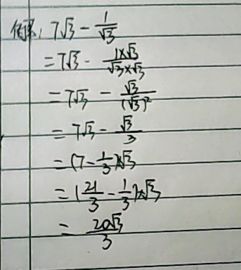 化课: 7√3 - 1/√3
= 7√3 - 1×√3/√3×√3
= 7√3 - √3/(√3)²
= 7√3 - √3/3
= (7 - 1/3)×√3
= (21/3 - 1/3)×√3
= 20√3/3